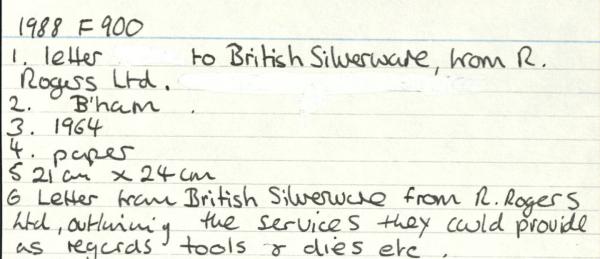 1988 F 900
1. letter to British Silverware, from R.
Rogers Ltd.
2. B'ham .
3. 1964
4. paper
5 21 cm x 24 cm
6 Letter from British Silverware from R. Rogers
Ltd, outlining the services they could provide
as regards tools & dies etc .